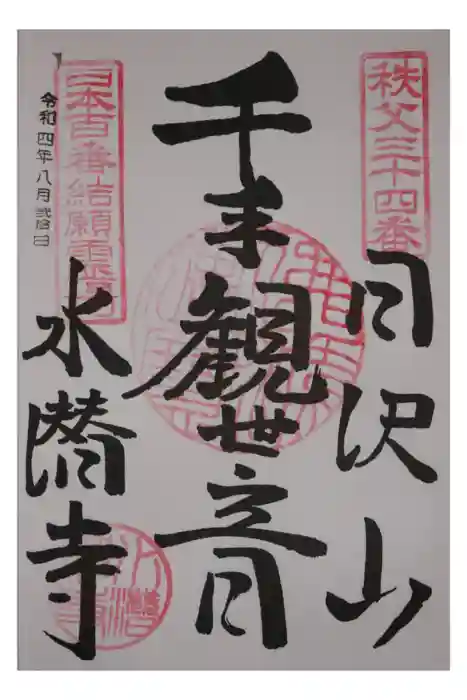 秩父三十四番
日沢山
千手観世音
日本百番結願霊場
令和四年八月弐拾日
水潜寺